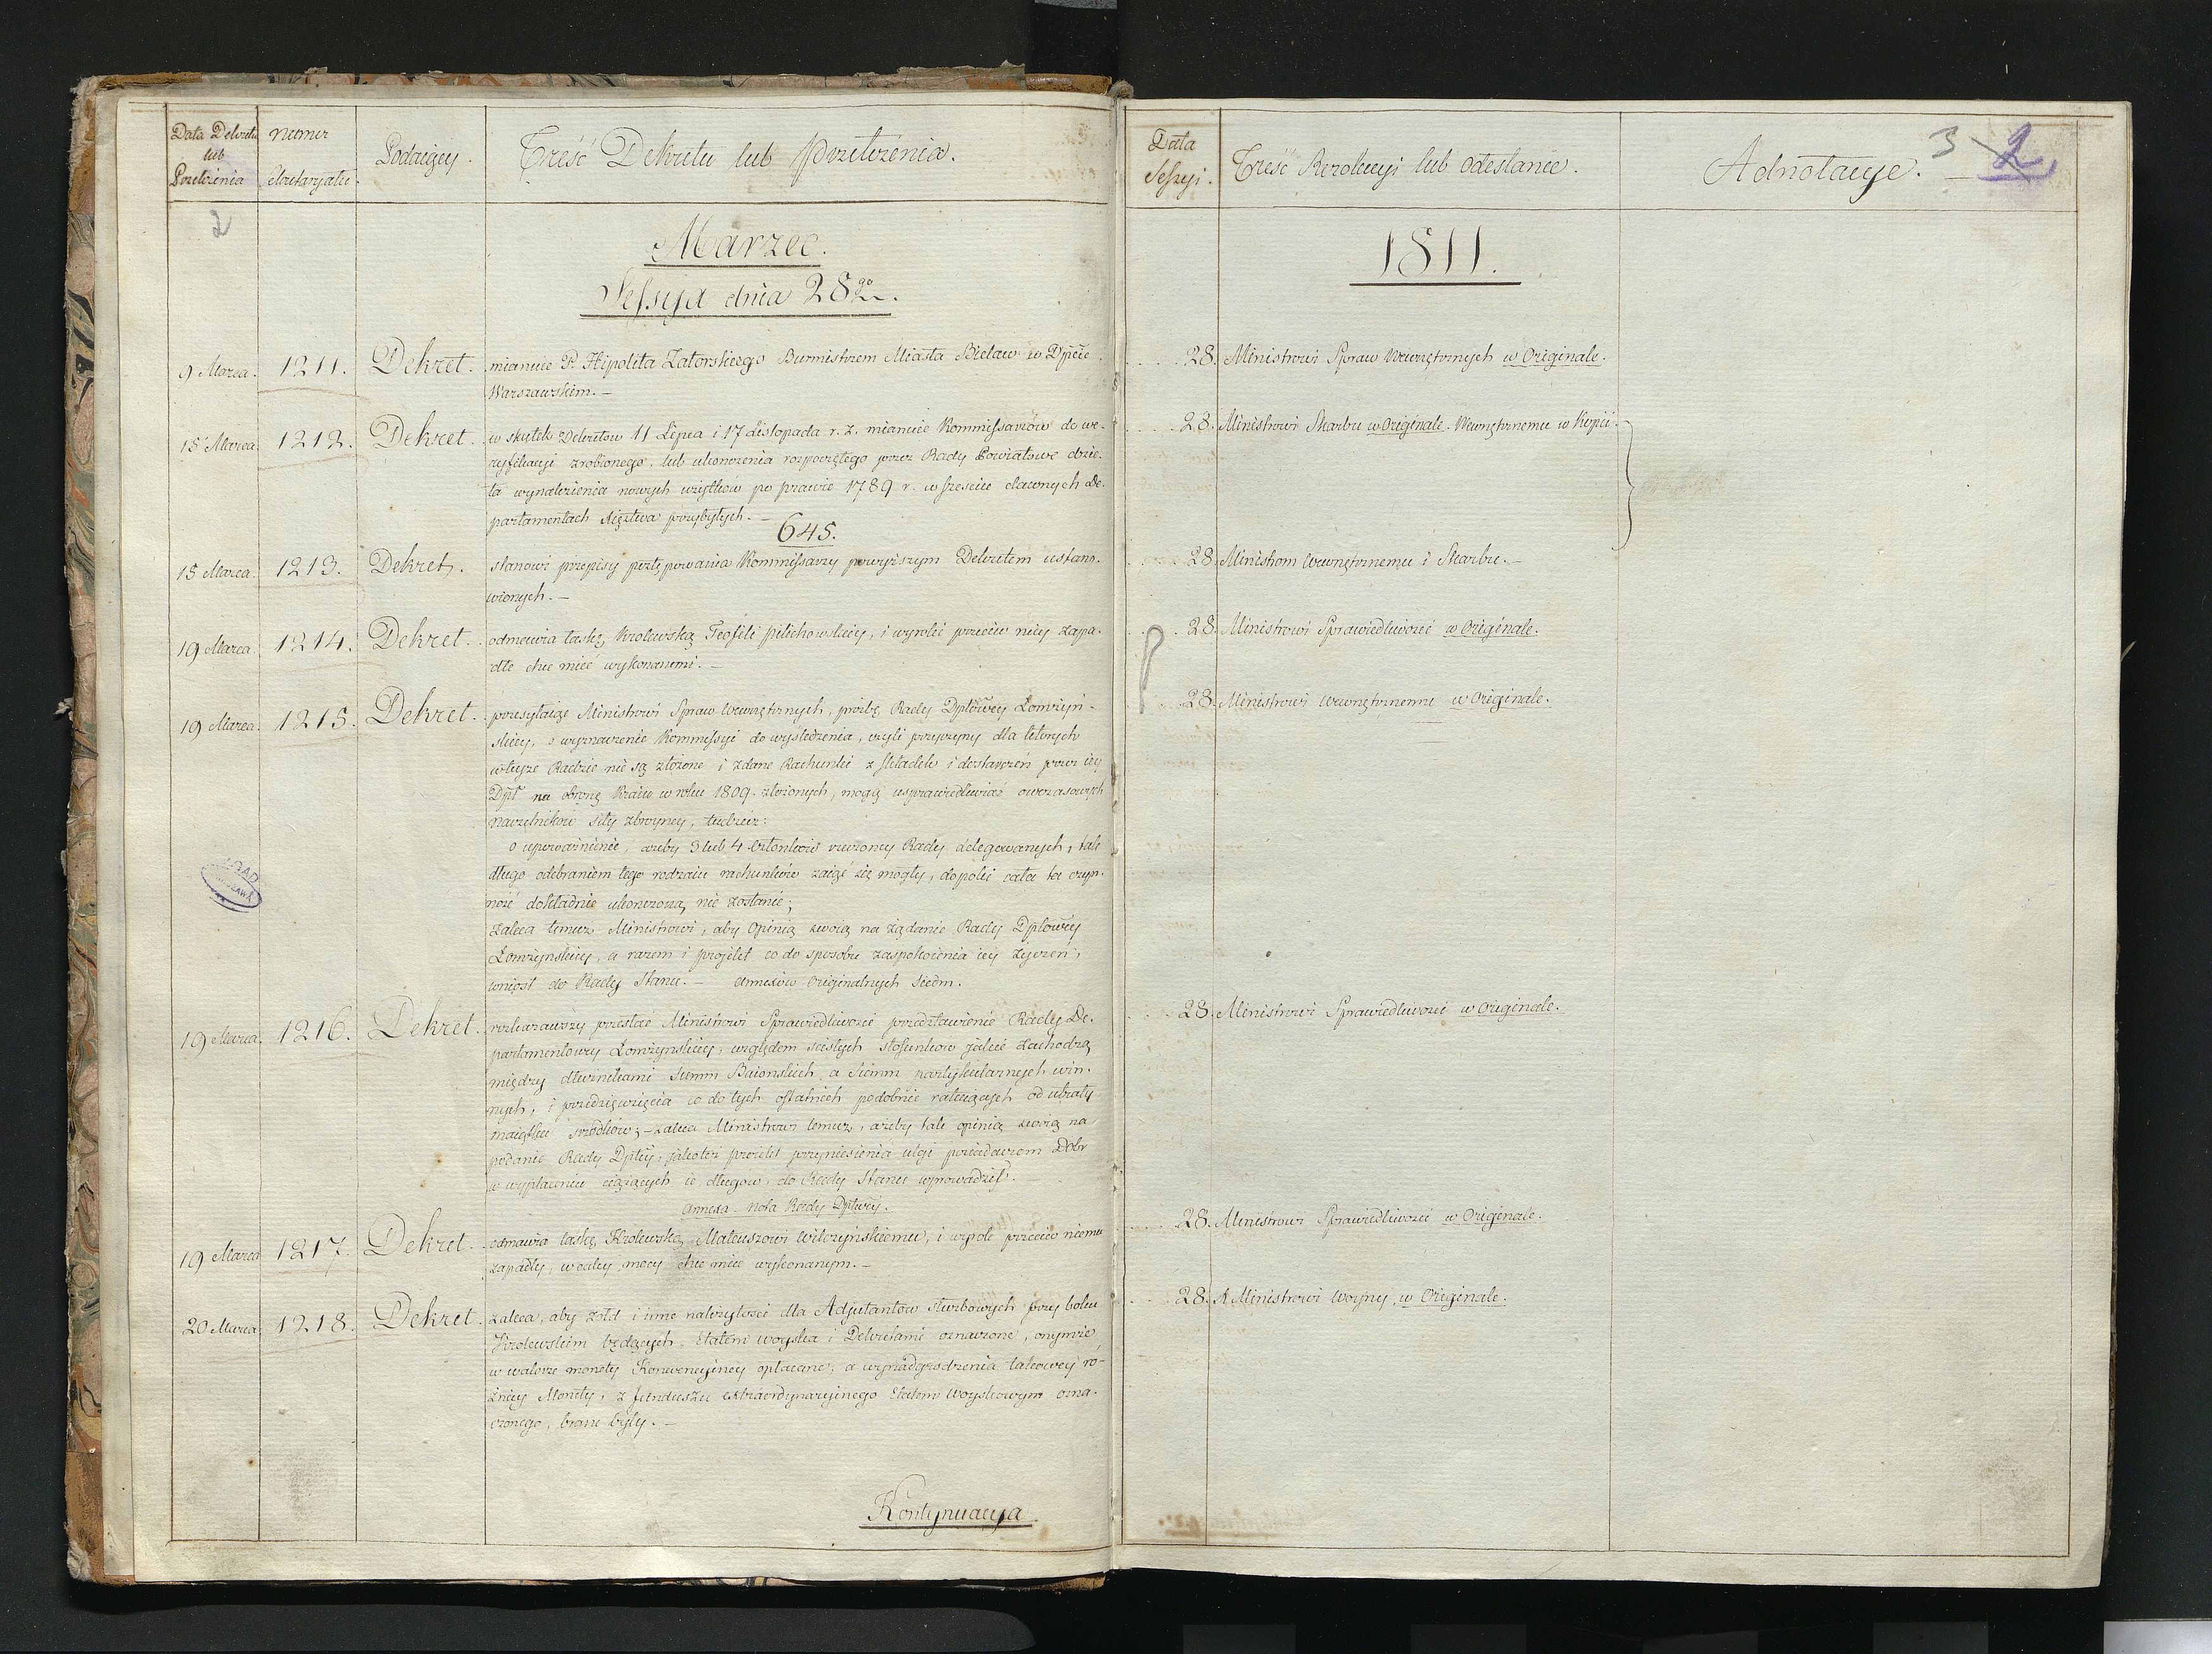 Data Dekretu
lub
Przełożenia
Numer
Sekretaryatu.
Podaiący.
Treść Dekretu lub Przełożenia.
2
Marzec.
Sessya dnia 28go.
9 Marca. 1211. Dekret. mianuie P. Hipolita Zatorskiego Burmistrzem Miasta Bielaw w Dpcie
Warszawskim. –
15 Marca 1212. Dekret. w skutek Dekretow 11 Lipca i 17 Listopada r. z. mianuie Kommissarzów do we-
ryfikacyi zrobionego, lub ukonczenia rozpoczętego przez Rady Powiatowe dzie-
ła wynalezienia nowych użytkow po prawie 1789 r. w szesciu dawnych De-
partamentach Xięztwa przybyłych. –
645.
15 Marca. 1213. Dekret. stanowi przepisy postępowania Kommissarzy powyższym Dekretem ustano-
wionych. –
19 Marca. 1214. Dekret. odmawia łaskę Krolewską Teofili Pilichowskiey, i wyroki przeciw niey zapa-
dłe chce mieć wykonanemi. –
19 Marca. 1215. Dekret. przesyłaiąc Ministrowi Spraw Wewnętrznych, prozbę Rady Dptowey Łomżyń-
skiey, o wyznaczenie Kommissyi do wysledzenia, czyli przyczyny dla ktorych
w teyże Radzie nie są złożone i zdane Rachunki z składek i dostarczeń przez iey
Dpt na obronę Kraiu w roku 1809. złożonych, mogą usprawiedliwiać owczasowych
naczelnikow siły zbroyney, tudzież:
o upoważnienie, ażeby 3 lub 4 Członkow rzeczoney Rady delegowanych, tak
długo odebraniem tego rodzaiu rachunków zaiąć się mogły, dopoki cała ta czyn-
ność dokładnie ukonczoną nie zostanie;
zaleca temuż Ministrowi, aby opinią swoią na żądanie Rady Dptowey
Łomżynskiey, a razem i projekt co do sposobu zaspokoienia iey życzeń,
wniosł do Rady Stanu. – Annexów Originalnych Siedm.
19 Marca. 1216. Dekret. rozkazawszy przesłać Ministrowi Sprawiedliwosci przedstawienie Rady De-
partamentowey Łomżynskiey, względem scisłych stosunkow jakie zachodzą
między dłużnikami Summ Baionskich, a Summ partykularnych win-
nych, i przedsięwzięcia co do tych ostatnich podobnie ratuiących od utraty
maiątku srodkow; – zaleca Ministrowi temuż, ażeby tak opinią swoią na
podanie Rady Dptey, jakoteż proiekt przyniesienia ulgi posiadaczom Dobr
w wypłacaniu ciążących ie długow, do Rady Stanu wprowadził. –
Annexa. Nota Rady Dptwey.
19 Marca 1217. Dekret. odmawia łaskę Krolewską Mateuszowi Wilczynskiemu, i wyrok przeciw niemu
zapadły, w całey mocy chce mieć wykonanym. –
20 Marca. 1218. Dekret. zaleca, aby żołd i inne należytości dla Adjutantow służbowych przy boku
Krolewskim będących, Etatem woyska i Dekretami oznaczone, onymże
w walorze monety Konwencyiney opłacane, a wynadgrodzenia takowey ró-
żnicy Monety, z funduszu extraordynaryinego Etatem Woyskowym ozna-
czonego, brane były. –
Kontynuacya.
Data
Sessyi.
Treść Rezolucyi lub odesłanie.
Adnotacye.
3 2
1811.
28. Ministrowi Spraw Wewnętrznych w Originale.
28. Ministrowi Skarbu w Originale. Wewnętrznemu w Kopii.
28. Ministrom Wewnętrznemu i Skarbu. –
28. Ministrowi Sprawiedliwosci w Originale.
28. Ministrowi Wewnętrznemu w Originale.
28. Ministrowi Sprawiedliwosci w Originale.
28. Ministrowi Sprawiedliwosci w Originale.
28. Ministrowi Woyny, w Originale.